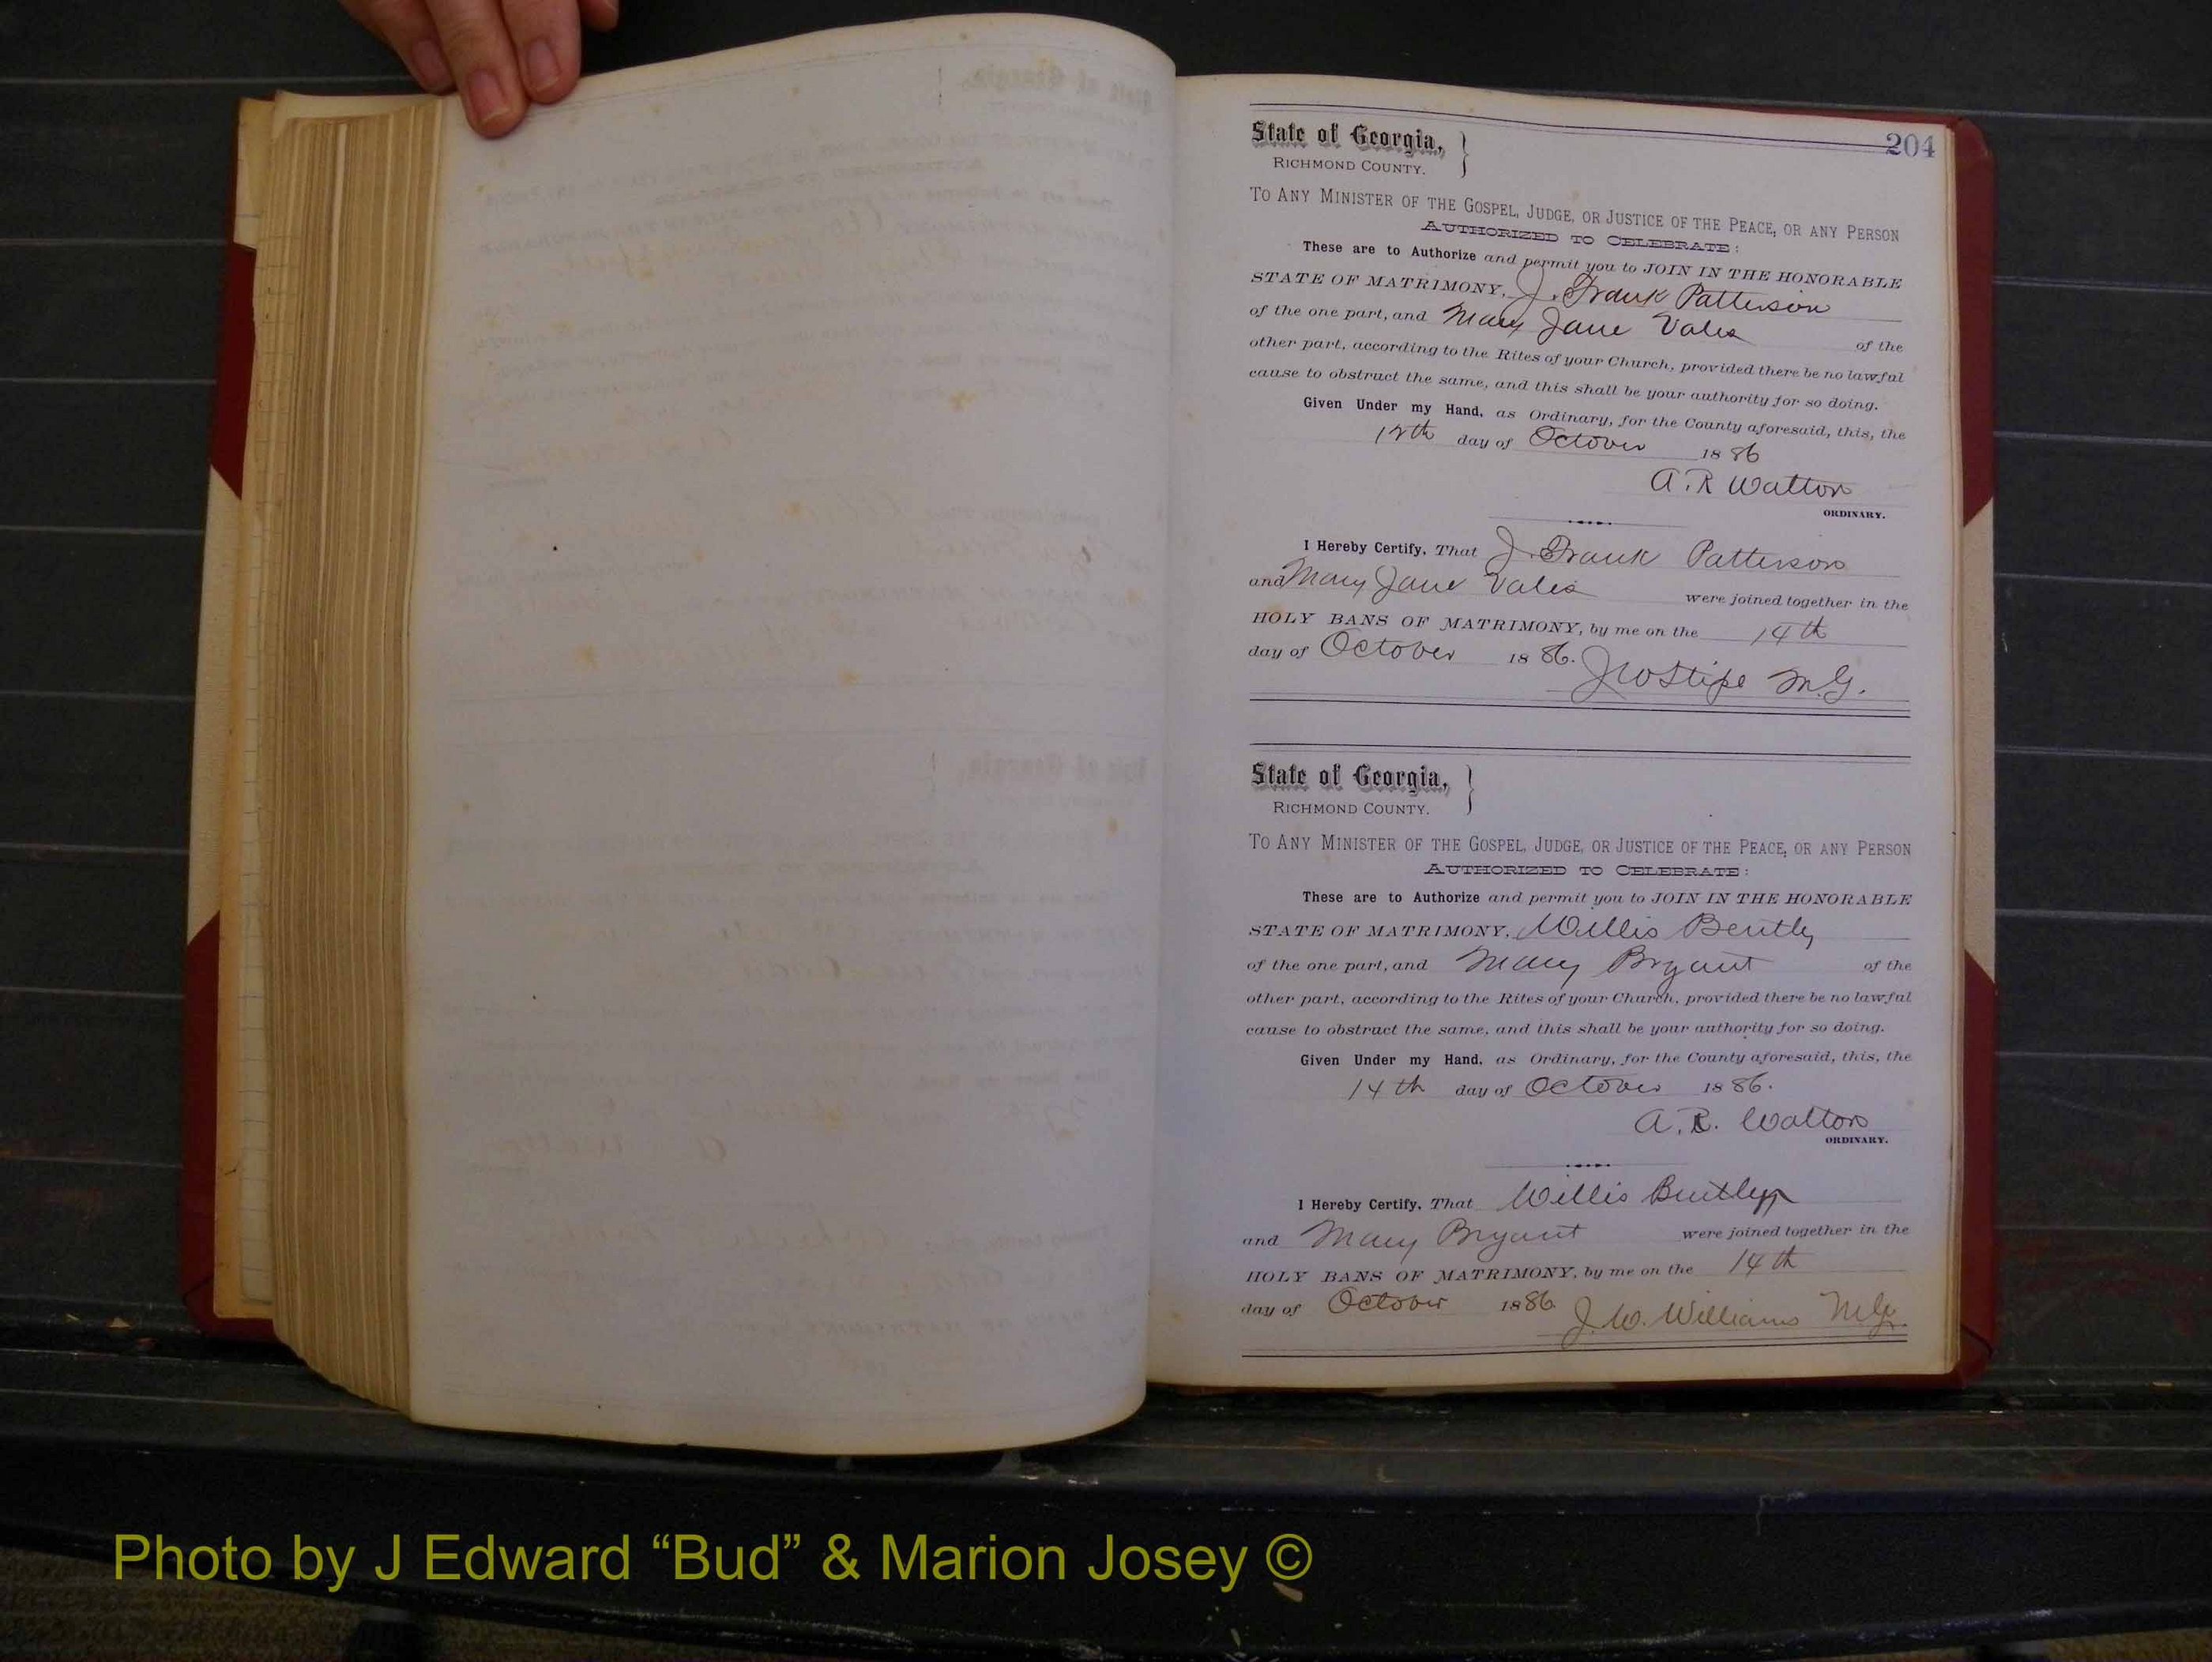 204
State of Georgia, }
RICHMOND COUNTY.
TO ANY MINISTER OF THE GOSPEL, JUDGE, OR JUSTICE OF THE PEACE, OR ANY PERSON
AUTHORIZED TO CELEBRATE:
These are to Authorize and permit you to JOIN IN THE HONORABLE
STATE OF MATRIMONY, J. Frank Patterson
of the one part, and Mary Jane Vales of the
other part, according to the Rites of your Church, provided there be no lawful
cause to obstruct the same, and this shall be your authority for so doing.
Given Under my Hand, as Ordinary, for the County aforesaid, this, the
12th day of October 1886
A. R Walton
ORDINARY.
I Hereby Certify, That J. Frank Patterson
and Mary Jane Vales were joined together in the
HOLY BANS OF MATRIMONY, by me on the 14th
day of October 1886. J W Stipe M.G.
State of Georgia, }
RICHMOND COUNTY.
TO ANY MINISTER OF THE GOSPEL, JUDGE, OR JUSTICE OF THE PEACE, OR ANY PERSON
AUTHORIZED TO CELEBRATE:
These are to Authorize and permit you to JOIN IN THE HONORABLE
STATE OF MATRIMONY, Willis Bently
of the one part, and Mary Bryant of the
other part, according to the Rites of your Church, provided there be no lawful
cause to obstruct the same, and this shall be your authority for so doing.
Given Under my Hand, as Ordinary, for the County aforesaid, this, the
14th day of October 1886.
A. R. Walton
ORDINARY.
I Hereby Certify, That Willis Bently
and Mary Bryant were joined together in the
HOLY BANS OF MATRIMONY, by me on the 14th
day of October 1886 J. W. Williams M.G.
Photo by J Edward “Bud” & Marion Josey ©